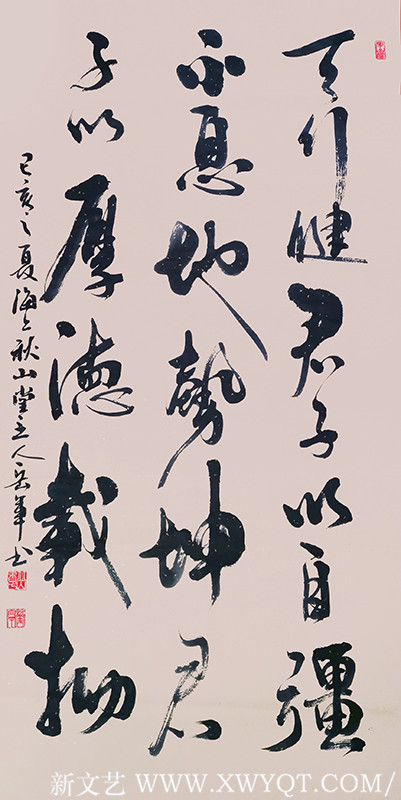 天行健君子以自彊
不息地勢坤君
子以厚德載物
己亥之夏海上秋山堂主人岳軍书
新文艺 WWW.XWYQT.COM/